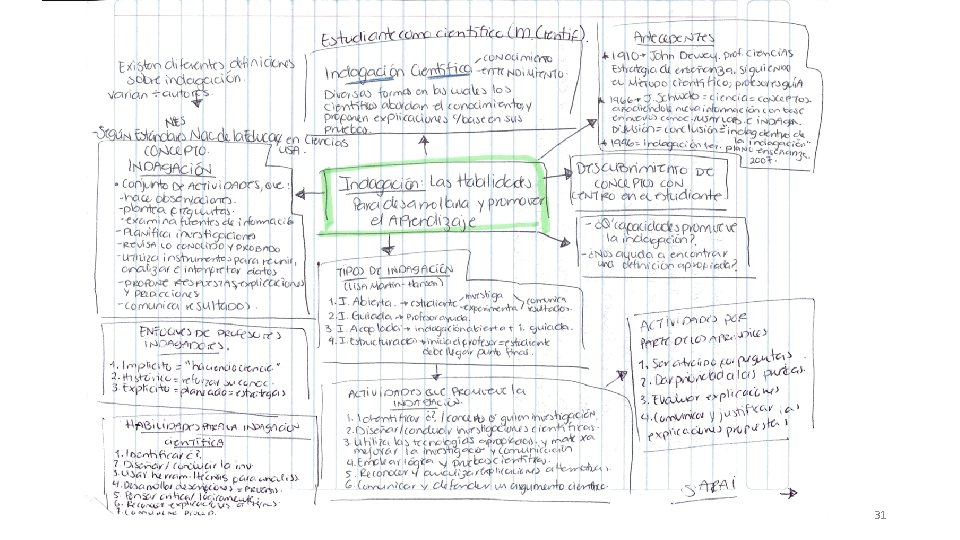 Estudiante como científico (m. Cientif).
Existen diferentes definiciones
sobre indagación.
varían ÷ autores.
Indagación Científica
conocimiento
entendimiento
Diversas formas en las cuales los
científicos abordan el conocimiento y
proponen explicaciones c/base en sus
pruebas.
Antecedentes
* 1910 → John Dewey, prof. ciencias
Estrategia de enseñanza, siguiendo
al Método científico, profesor es guía
* 1966 → J. Schwab = ciencia = conceptos
asociándole nueva información con base
Discusión = conclusión = indag dentro de
la indagación
* 1996 = indagación
2007.
NES
- Según Estándars Nac. de la Educac. en Ciencias
USA.
CONCEPTO
INDAGACIÓN
• Conjunto de actividades, que:
- hace observaciones.
- plantea preguntas.
- examina fuentes de información
- Planifica investigaciones
- Revisa lo conocido y probado
- Utiliza instrumentos para reunir,
analizar e interpretar datos
- Propone respuestas, explicaciones
y predicciones
- comunica resultados.
Indagación: Las Habilidades
Para desarrollarla y promover
el Aprendizaje
DESCUBRIMIENTO DE
CONCEPTO CON
CENTRO en el estudiante
- ¿Q' capacidades promueve
la indagación?
- ¿Nos ayuda a encontrar
una definición apropiada?
TIPOS DE INDAGACIÓN
(Lisa Martin-Hansen)
1. I. Abierta. → estudiante
investiga
experimenta
comunica
resultados.
2. I. Guiada → Profesor ayuda.
3 I. Acoplada → indagación abierta + i. guiada.
4. I. Estructurada → inicia el profesor = estudiante
debe llegar punto final.
ENFOQUES DE PROFESORES
INDAGADORES.
1. Implícito = "haciendo ciencia"
2. Histórico = reforzar su conoc.
3 Explícito = planeado = estrategias
ACTIVIDADES POR
PARTE DE LOS APRENDICES
1. Ser atraído por preguntas.
2. Dar prioridad a las pruebas.
3. Evaluar explicaciones
4. Comunicar y justificar las
explicaciones propuestas
ACTIVIDADES QUE PROMUEVE LA
INDAGACIÓN.
1. Identificar ¿? / conceptos q' guíen investigación
2. Diseñar / conducir investigaciones científicas.
3 Utiliza las tecnologías apropiadas, y mate
mejorar la investigación y comunicación
4. Emplear lógica y pruebas científicas.
5. Reconocer y analizar explicaciones alternativas.
6. Comunicar y defender un argumento científico.
HABILIDADES PARA LA INDAGACIÓN
científica
1. Identificar ¿?.
2 Diseñar / conducir la inv.
3. Usar herram. / técnicas para analisis
4. Desarrollar descripciones = pruebas.
5 Pensar crítica / lógicamente
6. Reconoc explicaciones
SARAI
31